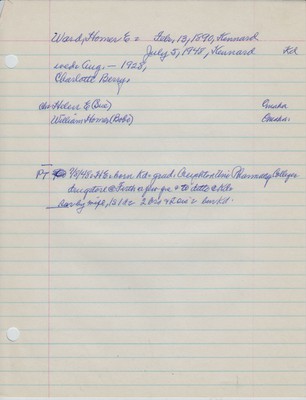 Ward, Homer E = Feb. 13, 1890, Kennard
July 5, 1948, Kennard Kd
wed: Aug. — 1928,
Charlotte Berry
ch: Helen E (Sue) Omaha
William Homer (Bobs) Omaha
PT 9/9/48: HE: born Kd: grad. Creighton Univ Pharmacy College:
drugstore @
sur by wife, 1s 1d = 2 bros + 2 sis = bur Kd.